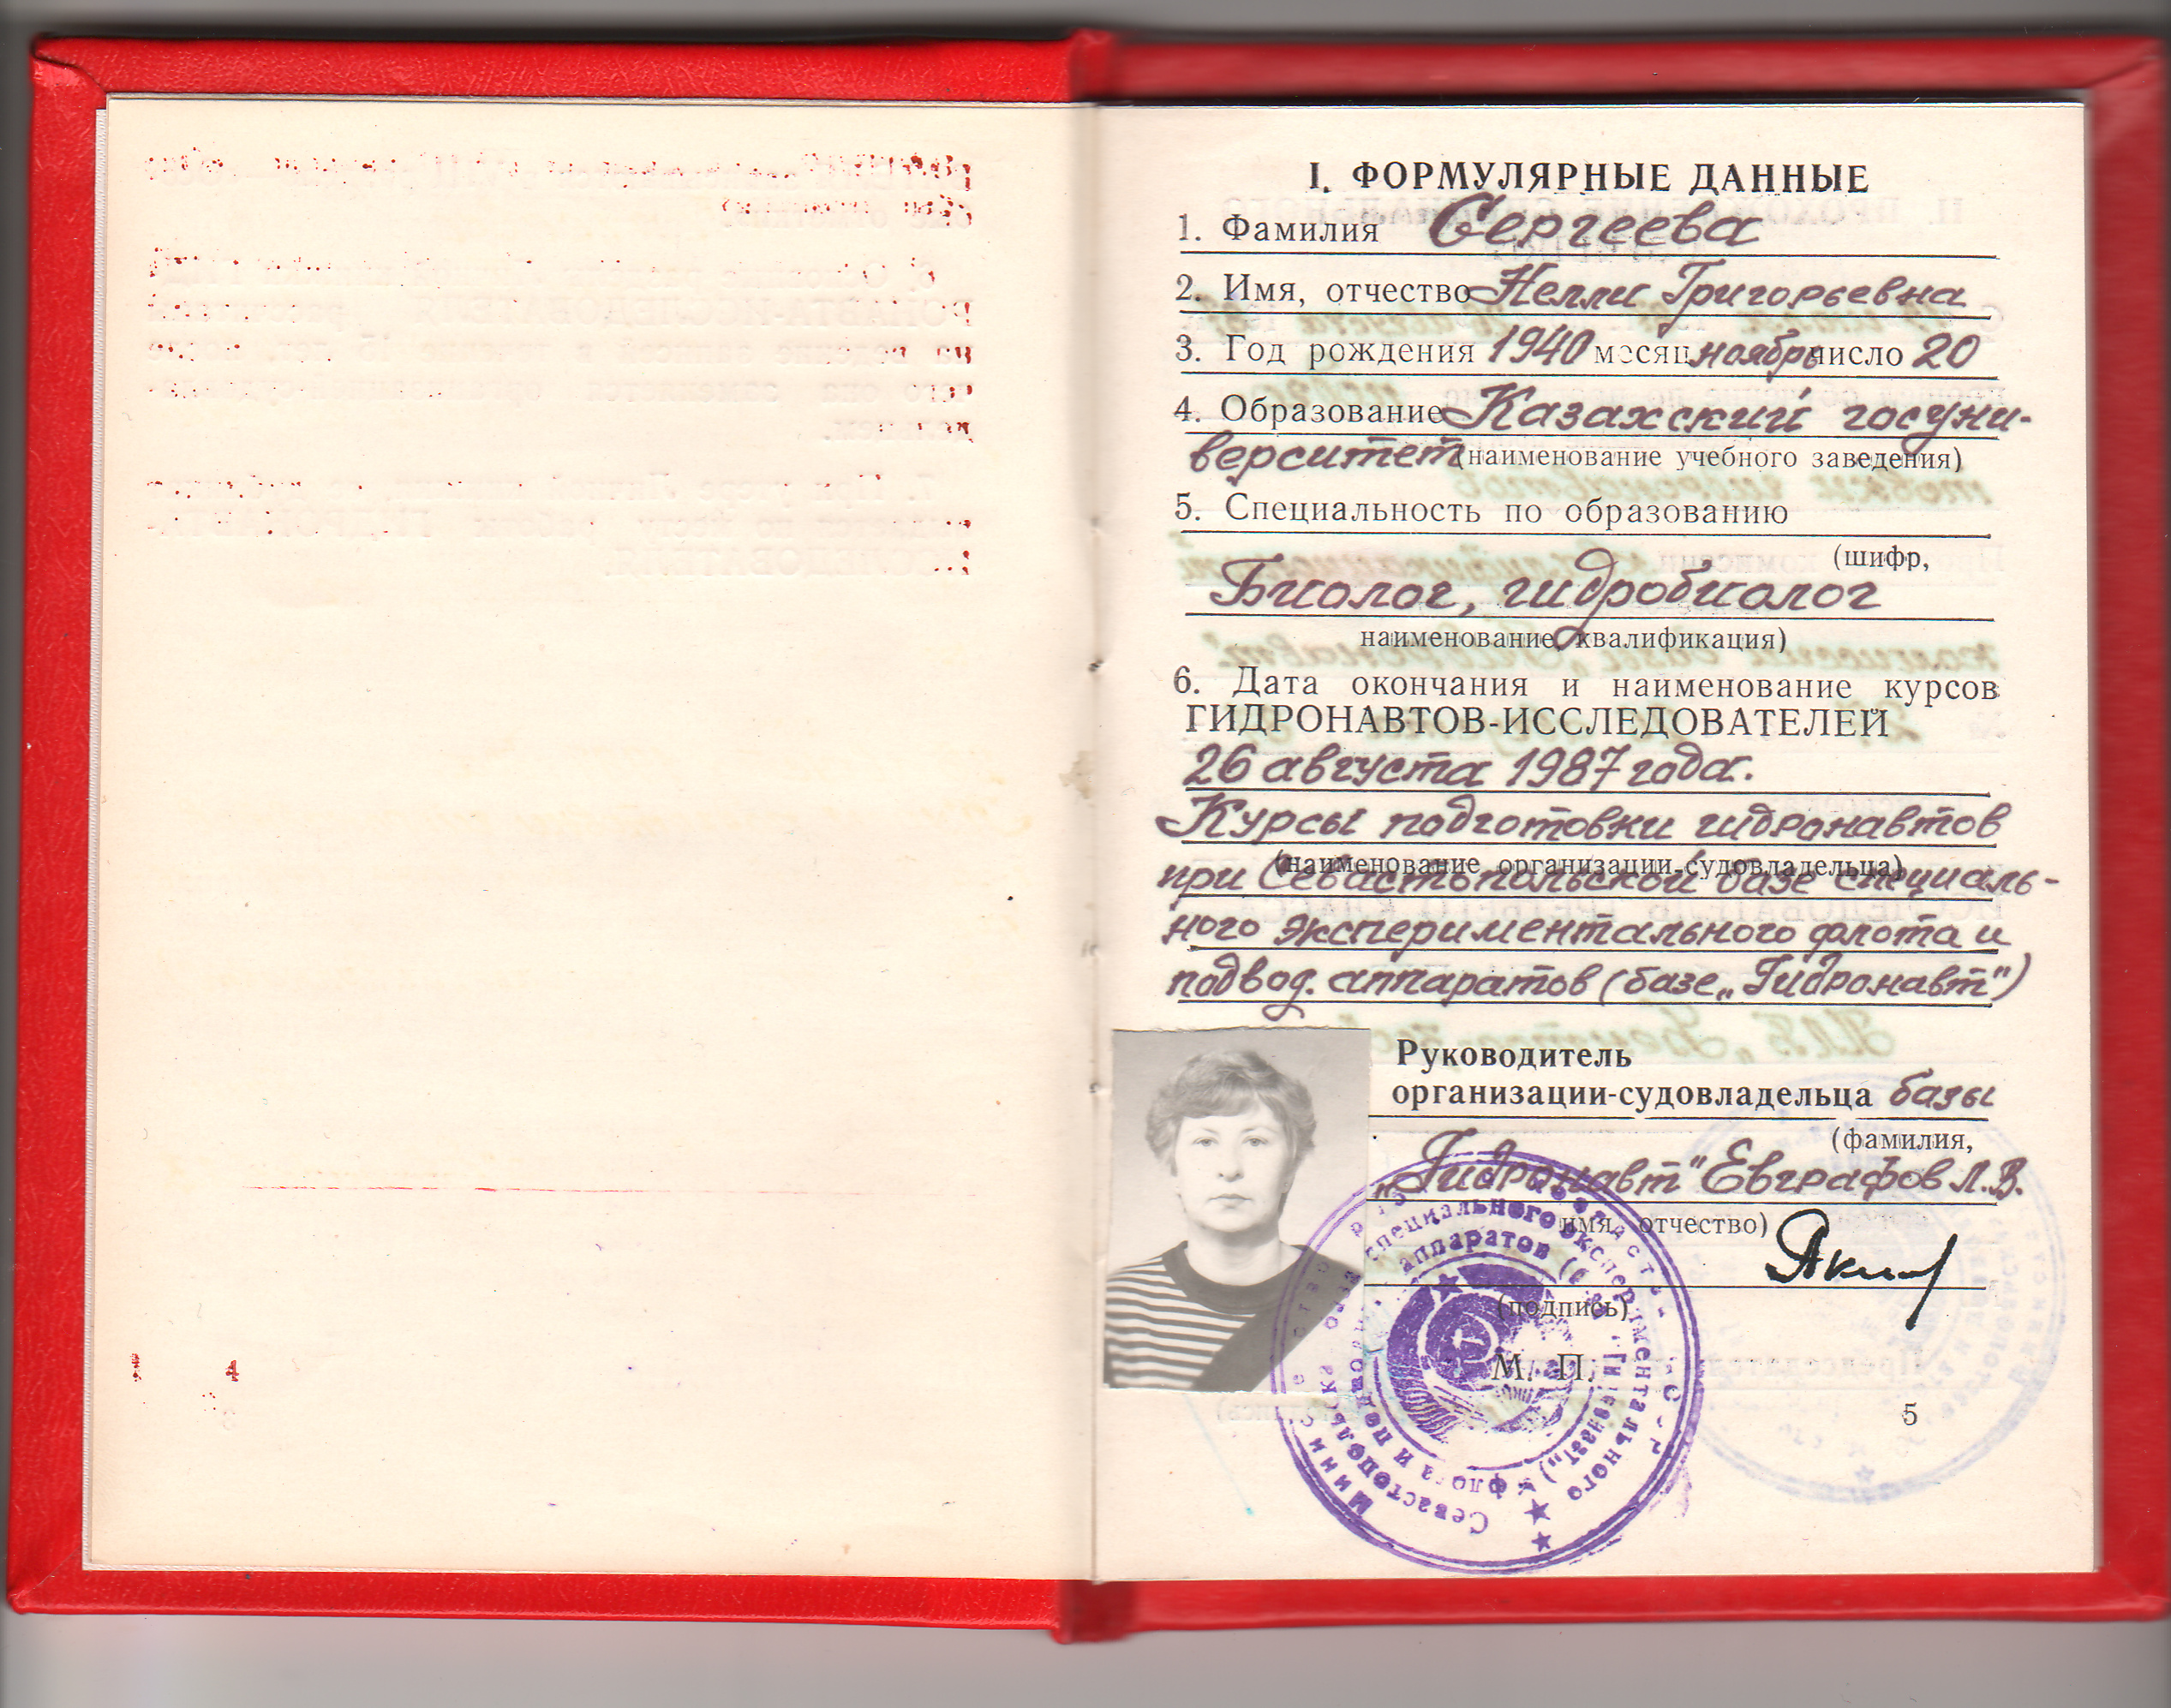 I. ФОРМУЛЯРНЫЕ ДАННЫЕ
1. Фамилия Сергеева
2. Имя, отчество Нелли Григорьевна
3. Год рождения 1940 месяц ноябрь число 20
4. Образование Казахский госуни-
верситет (наименование учебного заведения)
5. Специальность по образованию
(шифр,
Биолог, гидробиолог
наименование, квалификация)
6. Дата окончания и наименование курсов
ГИДРОНАВТОВ-ИССЛЕДОВАТЕЛЕЙ
26 августа 1987 года.
Курсы подготовки гидронавтов
(наименование организации-судовладельца)
при Севастопольской базе специаль-
ного экспериментального флота и
подвод. аппаратов (базе „Гидронавт")
Руководитель
организации-судовладельца базы
(фамилия,
„Гидронавт" Евграфов Л.В.
имя, отчество)
(подпись)
М. П.
5
специального экспериментального
аппаратов
флота и
Севастопольская
4